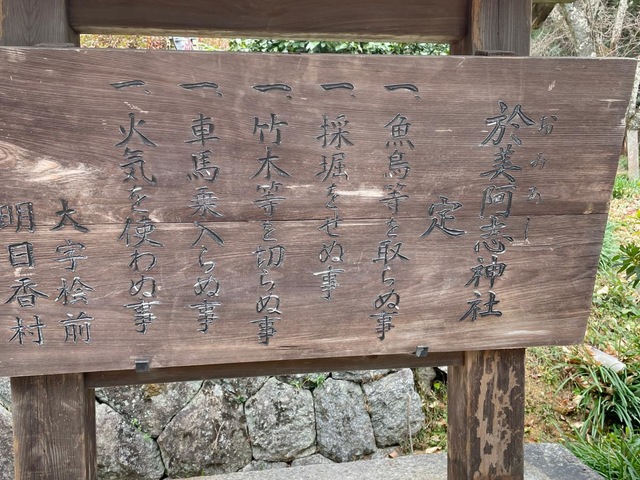 於美阿志神社
おみあし
定
一、魚鳥等を取らぬ事
一、採堀をせぬ事
一、竹木等を切らぬ事
一、車馬乗入らぬ事
一、火気を使わぬ事
大字桧前
明日香村